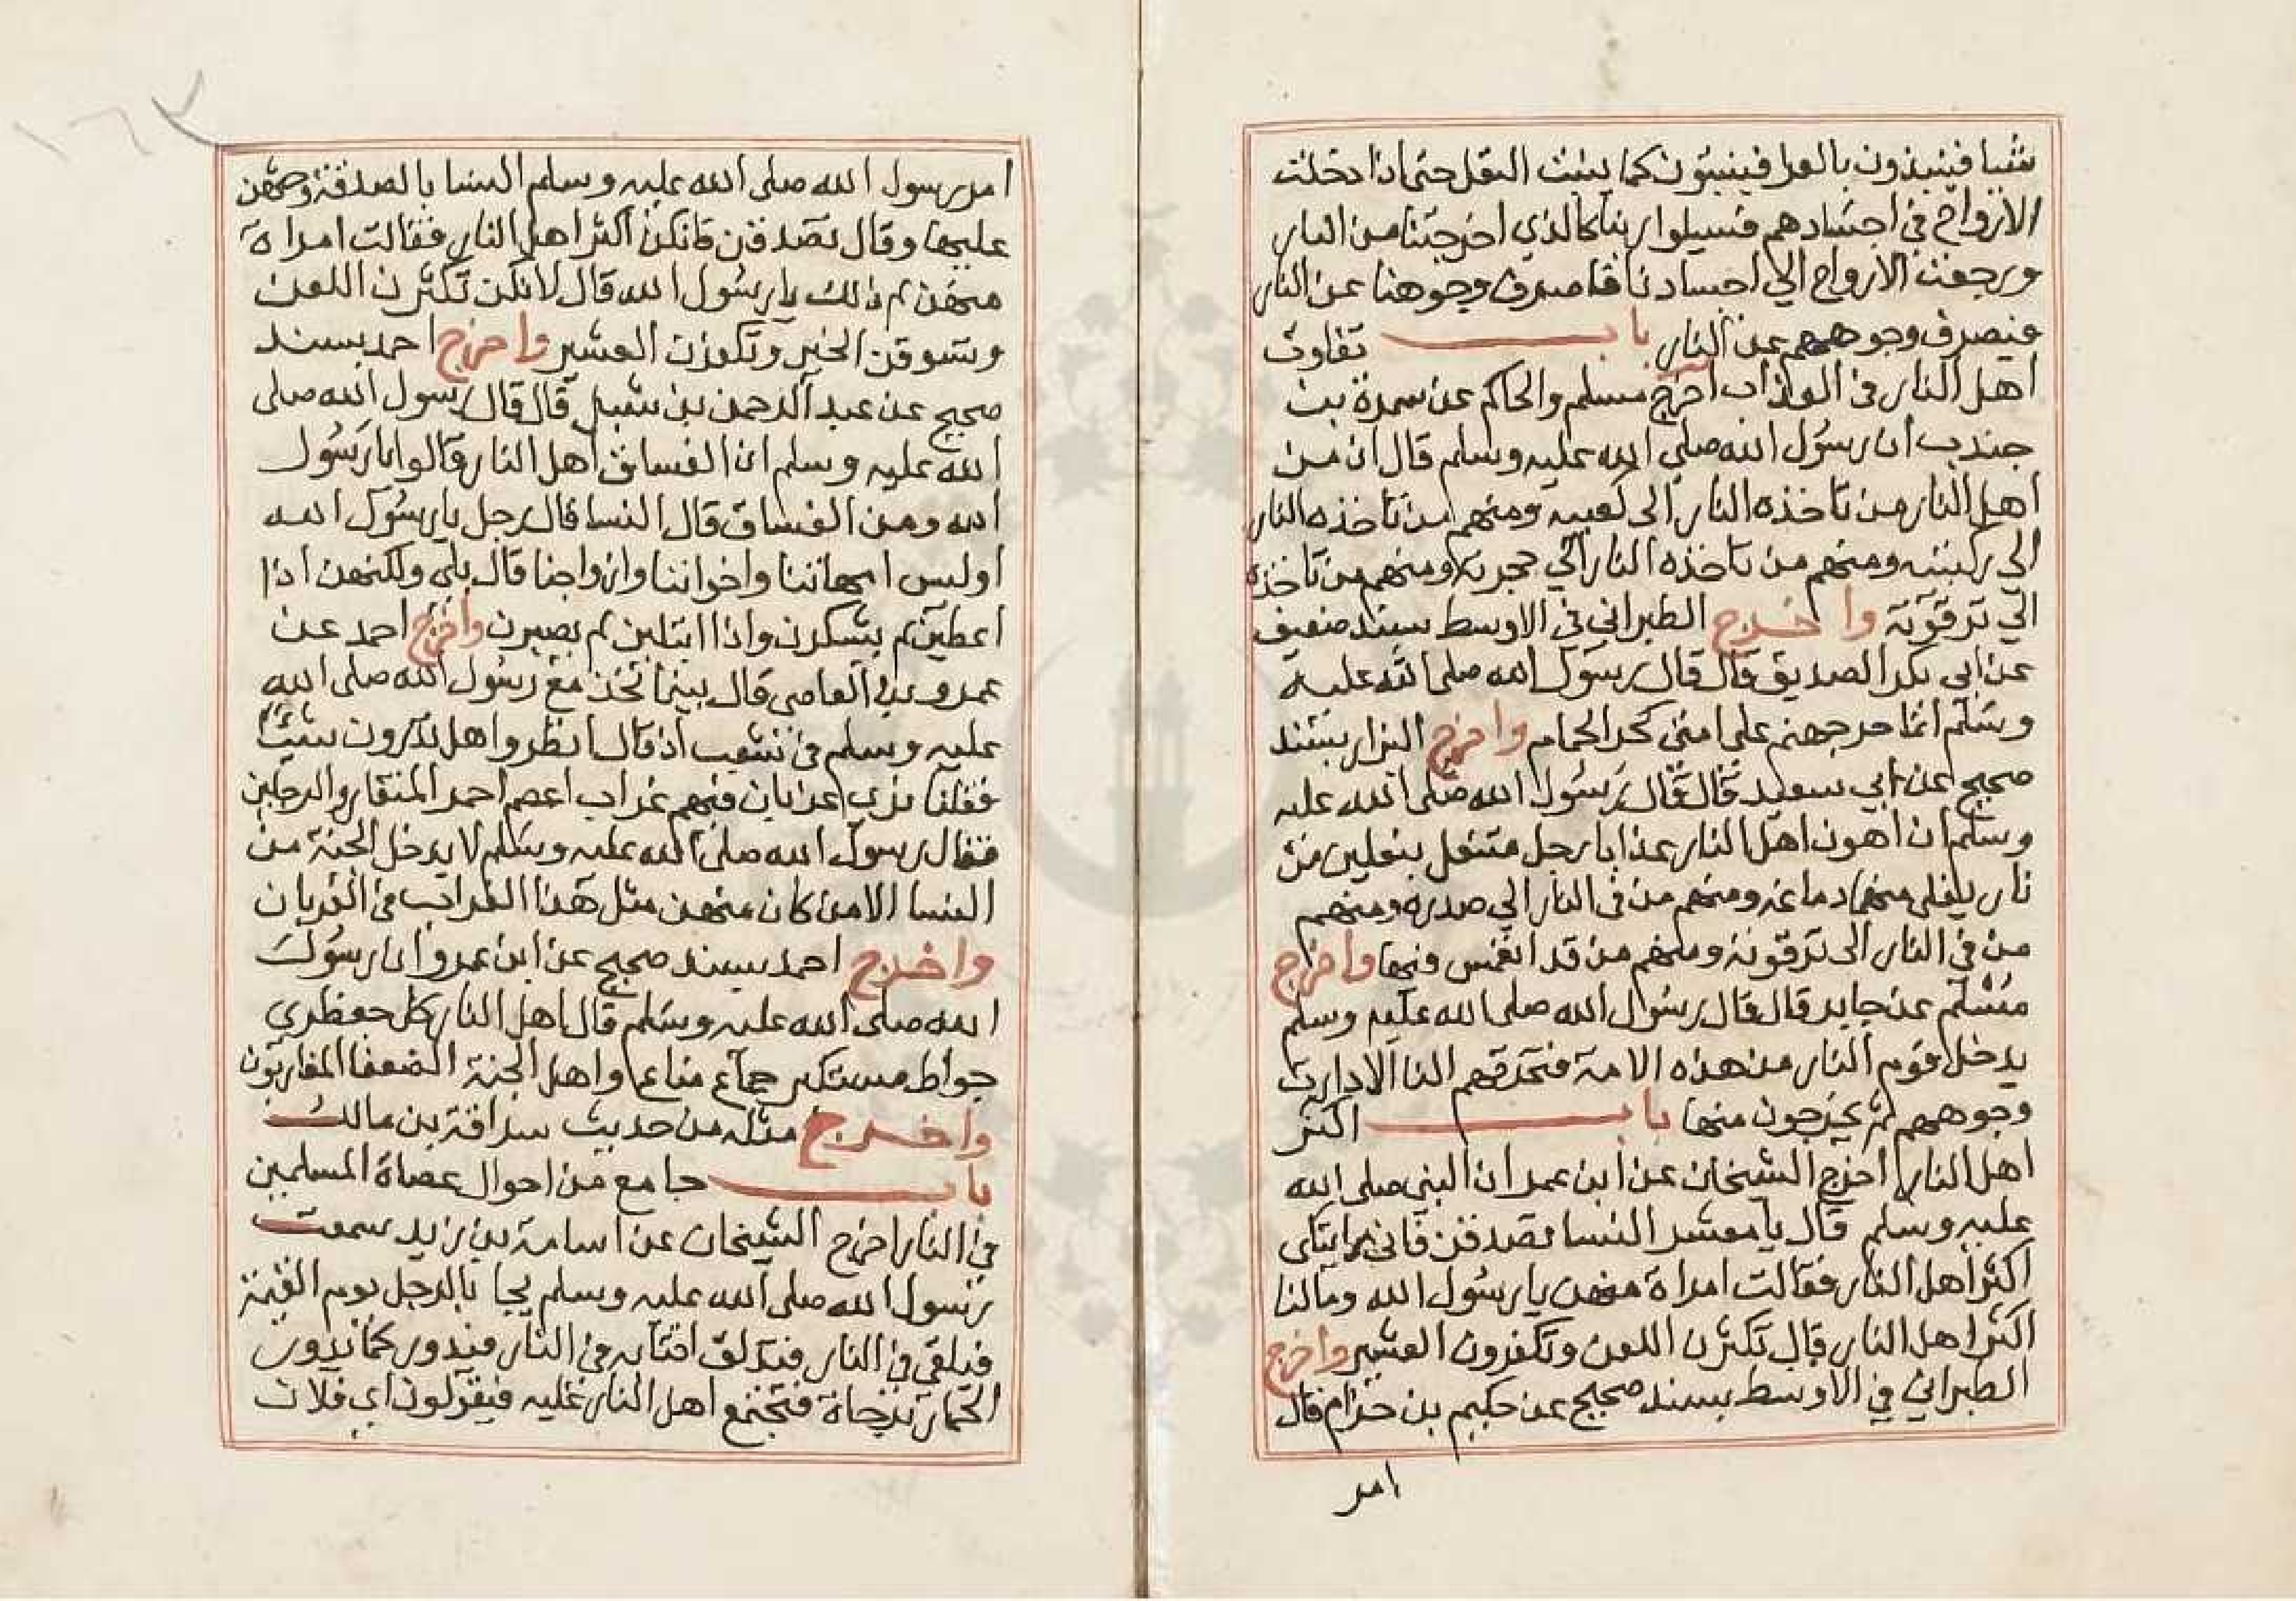 شيا فينبذون بالعرا فينبتون كما ينبت البقل حتى اذا دخلت
الارواح في اجسادهم فيسيلوا ربنا كالذي اخرجتنا من النار
ورجعت الارواح الي اجسادنا فاصرف وجوهنا عن النار
فيصرف وجوههم عن النار باب تفاوت
اهل النار في العذاب اخرج مسلم والحاكم عن سمرة بن
جندب ان رسول الله صلى الله عليه وسلم قال ان من
اهل النار من تاخذه النار الى كعبيه ومنهم من تاخذه النار
الى ركبتيه ومنهم من تاخذه النار الي حجزته ومنهم من تاخذه
الي ترقوته واخرج الطبراني في الاوسط بسند ضعيف
عن ابي بكر الصديق قال قال رسول الله صلى الله عليه
وسلم انما حر جهنم على امتي كحر الحمام واخرج البزار بسند
صحيح عن ابي سعيد قال قال رسول الله صلى الله عليه
وسلم ان اهون اهل النار عذابا رجل متنعل بنعلين من
نار يغلي منهما دماغه ومنهم من في النار الي صدره ومنهم
من في النار الى ترقوته ومنهم من قد انغمس فيها واخرج
مسلم عن جابر قال قال رسول الله صلى الله عليه وسلم
يدخل قوم النار من هذه الامة فتحرقهم النار الا دارات
وجوههم ثم يخرجون منها باب اكثر
اهل النار اخرج الشيخان عن ابن عمر ان النبي صلى الله
عليه وسلم قال يا معشر النسا تصدقن فاني رايتكن
اكثر اهل النار فقالت امراة منهن يا رسول الله ومالنا
اكثر اهل النار قال تكثرن اللعن وتكفرون العشير واخرج
الطبراني في الاوسط بسند صحيح عن حكيم بن حزام قال
امر
امر رسول الله صلى الله عليه وسلم النسا بالصدقة وحثهن
عليها وقال تصدقن فانكن اكثر اهل النار فقالت امراة
منهن لم ذلك يا رسول الله قال لانكن تكثرن اللعن
وتسوقن الخير وتكفرن العشير واخرج احمد بسند
صحيح عن عبد الرحمن بن شبل قال قال رسول الله صلى
الله عليه وسلم ان الفساق اهل النار قالوا يا رسول
الله ومن الفساق قال النسا قال رجل يا رسول الله
اوليس امهاتنا واخواتنا وازواجنا قال بلى ولكنهن اذا
اعطين لم يشكرن واذا ابتلين لم يصبرن واخرج احمد عن
عمرو بن العاصي قال بينما نحن مع رسول الله صلى الله
عليه وسلم في شعب اذ قال انظروا هل ترون شيئا
فقلنا نري غربان فيهم غراب اعصم احمر المنقار والرجلين
فقال رسول الله صلى الله عليه وسلم لا يدخل الجنة من
النسا الا من كان منهن مثل هذا الغراب في الغربان
واخرج احمد بسند صحيح عن ابن عمرو ان رسول
الله صلى الله عليه وسلم قال اهل النار كل جعظري
جواظ مستكبر جماع مناع واهل الجنة الضعفا المغلوبون
واخرج مثله من حديث سراقة بن مالك
باب جامع من احوال عصاة المسلمين
في النار اخرج الشيخان عن اسامة بن زيد سمعت
رسول الله صلى الله عليه وسلم يجا بالرجل يوم القيمة
فيلقى في النار فتندلق اقتابه في النار فيدور كما يدور
الحمار برحاه فتجتمع اهل النار عليه فيقولون اي فلان